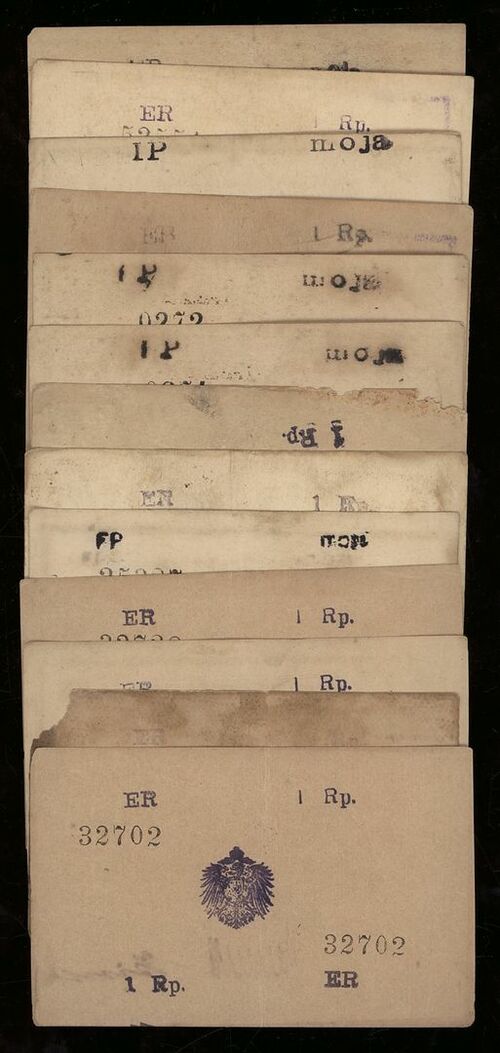 ER 1 Rp.
IP moja
ER 1 Rp.
IP moja
0272
IP moja
1 Rp.
ER 1 Rp.
FP moja
ER 1 Rp.
ER 1 Rp.
ER 1 Rp.
32702
32702
1 Rp. ER